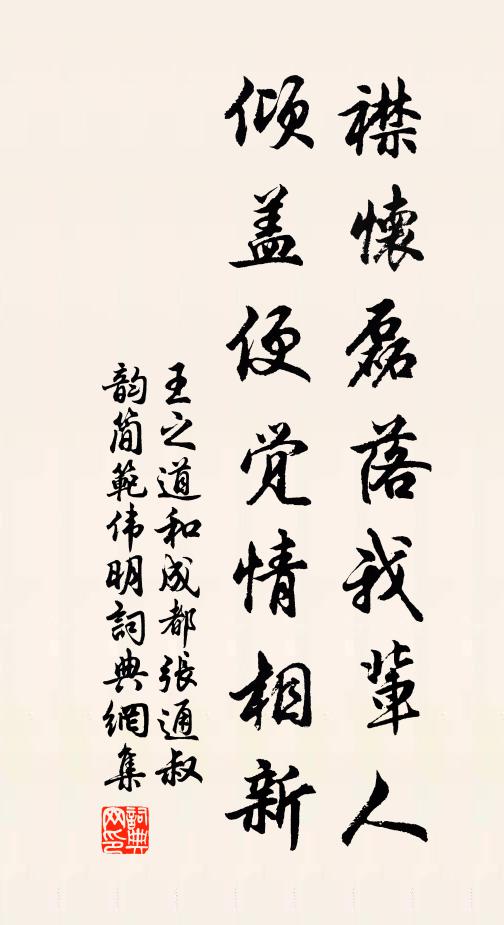 襟懷磊落我輩人
傾盖便觉情相新
王之道和成都張通叔
韵简範伟明詞典網集
詞典网印